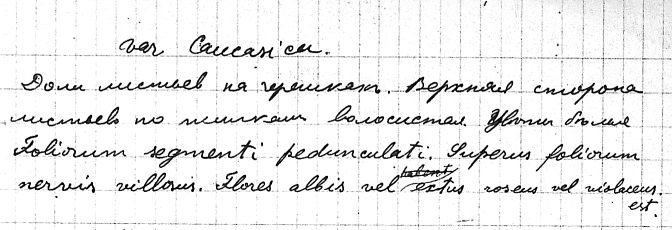 var Caucasica.
Доли листьев на черешках. Верхняя сторона
листьев по жилкам волосистая. Цвѣты бѣлые
Foliorum segmenti pedunculati. Superus foliorum
nervis villosus. Flores albis vel extus roseus vel violaceus.
est.